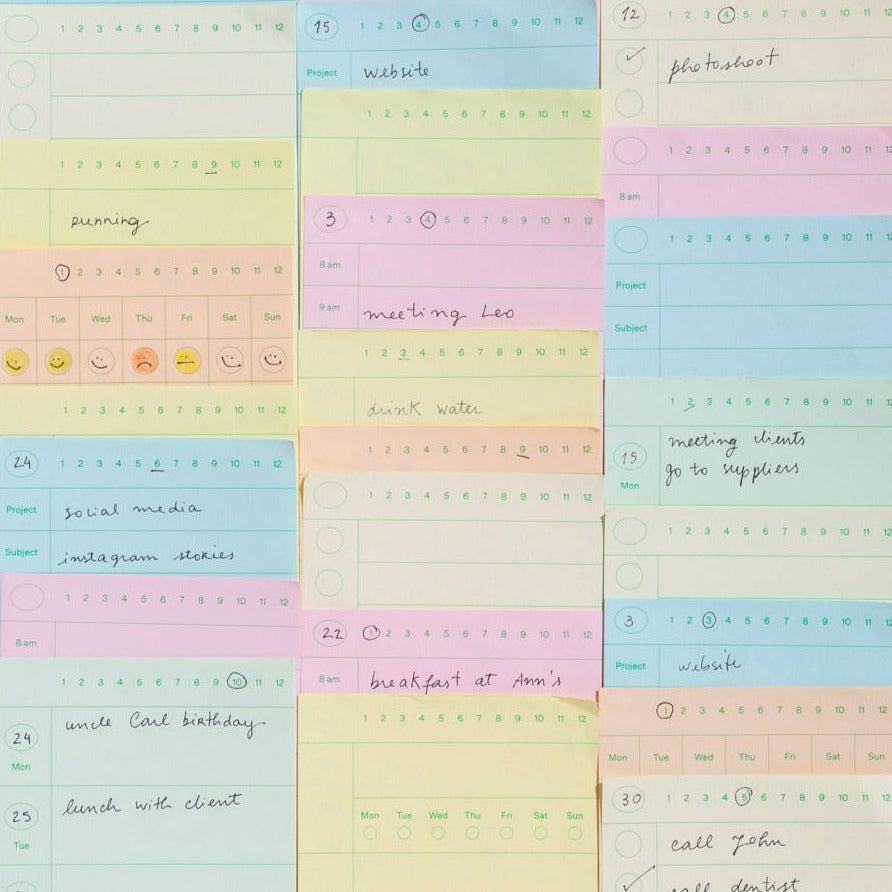 1 2 3 4 5 6 7 8 9 10 11 12
1 2 3 4 5 6 7 8 9 10 11 12
running
1 2 3 4 5 6 7 8 9 10 11 12
Mon Tue Wed Thu Fri Sat Sun
1 2 3 4 5 6 7 8 9 10 11 12
24 1 2 3 4 5 6 7 8 9 10 11 12
Project social media
Subject instagram stories
1 2 3 4 5 6 7 8 9 10 11 12
8 am
1 2 3 4 5 6 7 8 9 10 11 12
uncle Carl birthday
24
Mon
lunch with client
25
Tue
15 1 2 3 4 5 6 7 8 9 10 11 12
Project website
1 2 3 4 5 6 7 8 9 10 11 12
3 1 2 3 4 5 6 7 8 9 10 11 12
8 am
9 am meeting Leo
1 2 3 4 5 6 7 8 9 10 11 12
drink water
1 2 3 4 5 6 7 8 9 10 11 12
1 2 3 4 5 6 7 8 9 10 11 12
22 1 2 3 4 5 6 7 8 9 10 11 12
8 am breakfast at Ann's
1 2 3 4 5 6 7 8 9 10 11 12
Mon Tue Wed Thu Fri Sat Sun
12 1 2 3 4 5 6 7 8 9 10 11 12
photoshoot
1 2 3 4 5 6 7 8 9 10 11 12
8 am
1 2 3 4 5 6 7 8 9 10 11 12
Project
Subject
1 2 3 4 5 6 7 8 9 10 11 12
meeting clients
15 go to suppliers
Mon
1 2 3 4 5 6 7 8 9 10 11 12
3 1 2 3 4 5 6 7 8 9 10 11 12
Project website
1 2 3 4 5 6 7 8 9 10 11 12
Mon Tue Wed Thu Fri Sat Sun
30 1 2 3 4 5 6 7 8 9 10 11 12
call John
call dentist